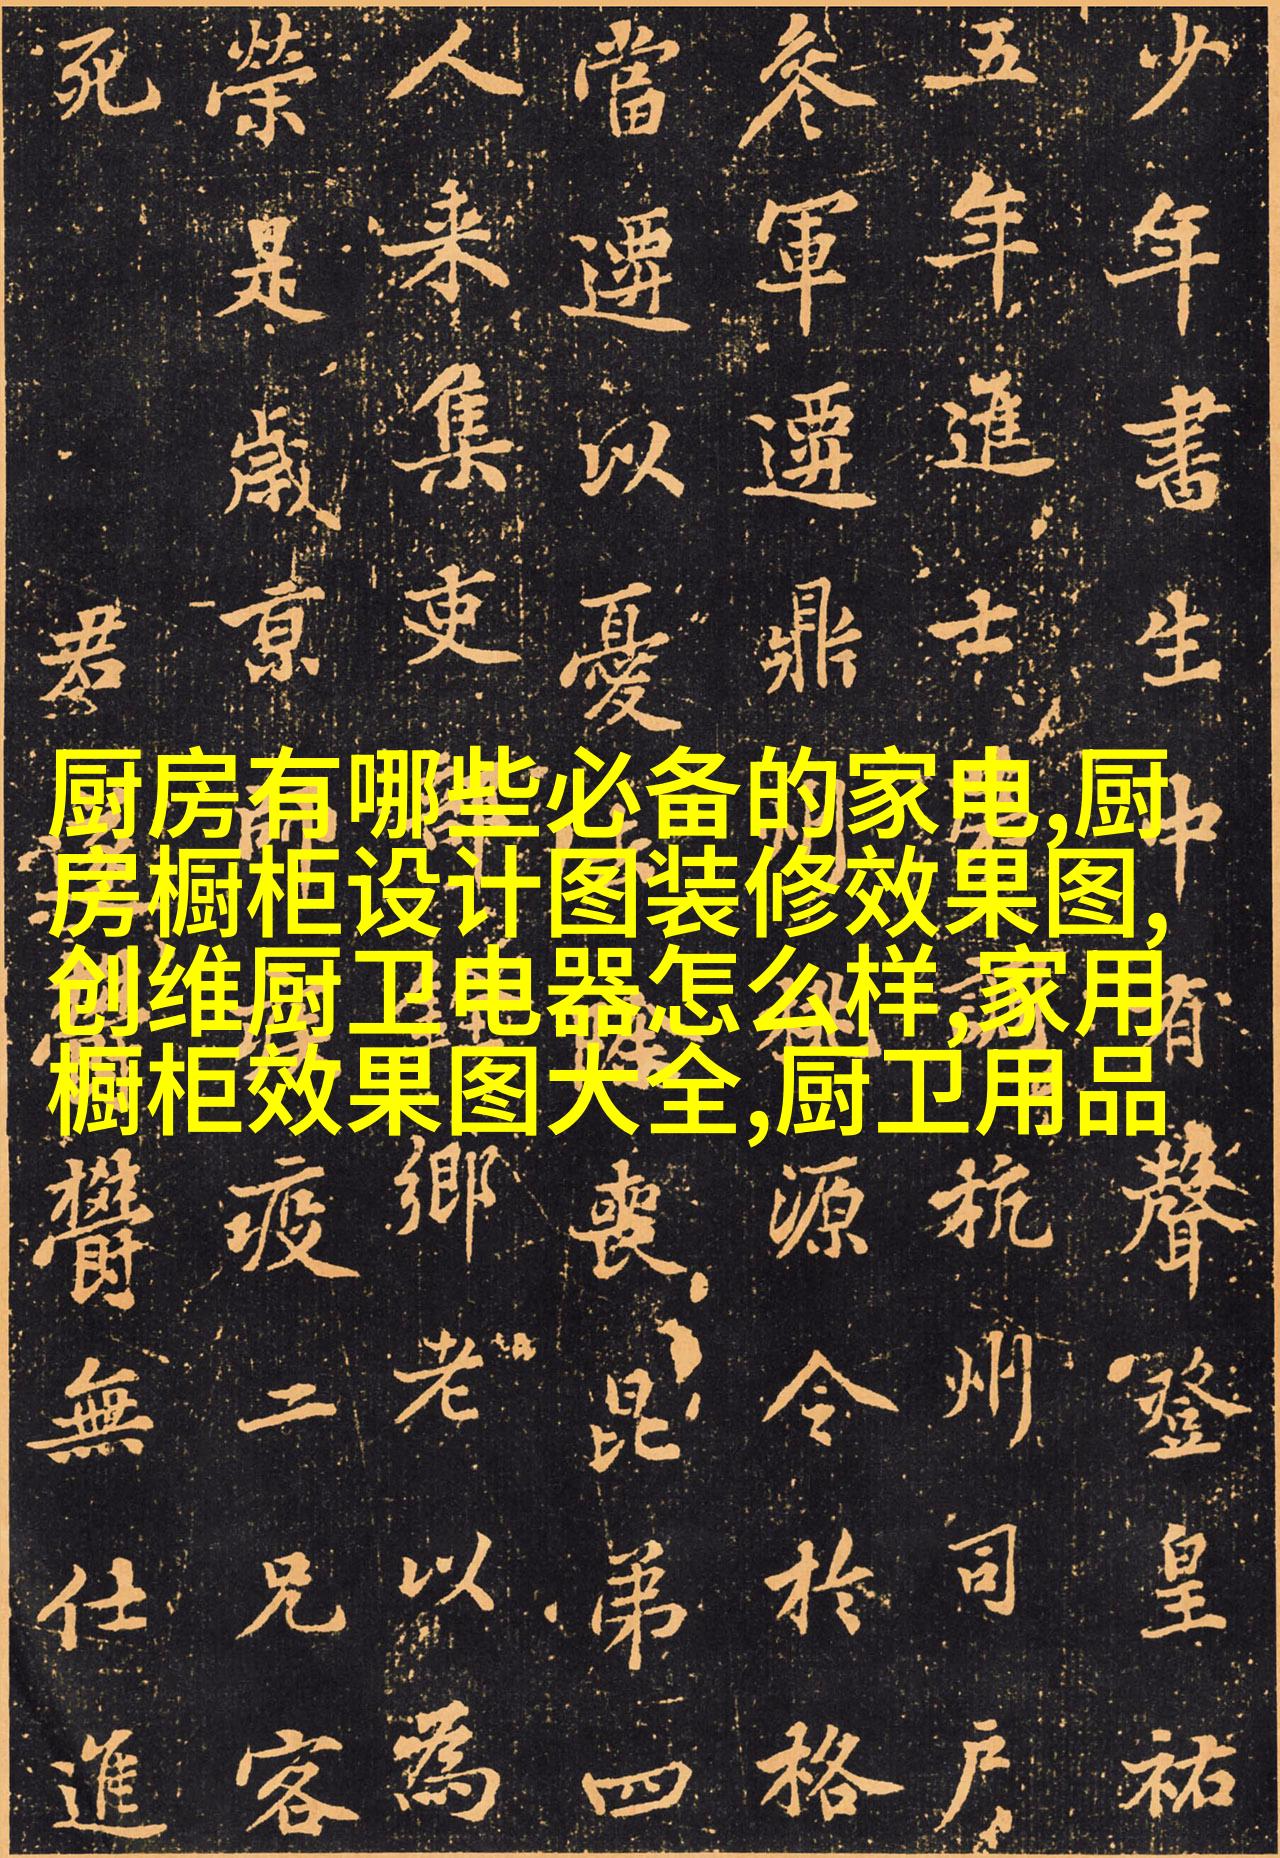 少年書生中有聲登皇祐
五年進士
杭州司户
參軍遷鼎
源令於格
當遷以憂
喪昆弟四
人来集吏
鄉老以為
榮是歲京
疫二兄客
死
君
無仕進
厨房有哪些必备的家电,厨
房橱柜设计图装修效果图,
创维厨卫电器怎么样,家用
橱柜效果图大全,厨卫用品